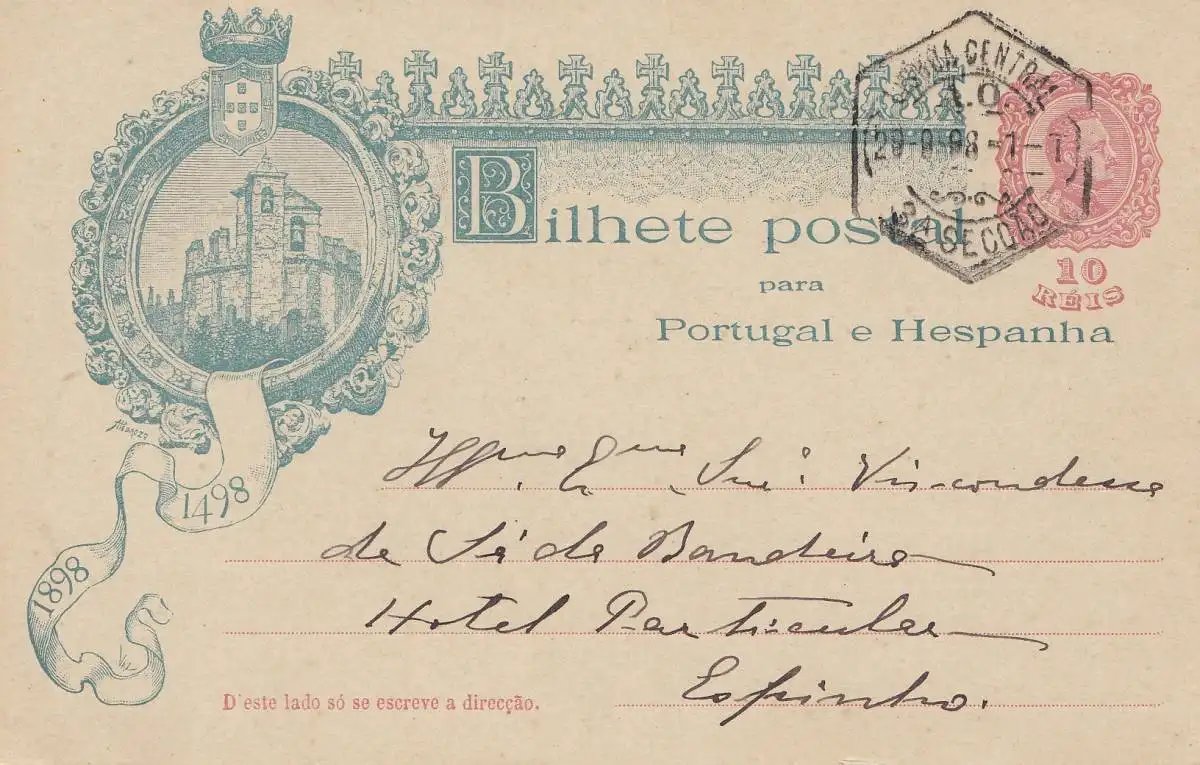 LISBOA CENTRAL
29-8-98-7-T
3ª SECÇÃO
Bilhete postal
para
Portugal e Hespanha
10
RÉIS
1498
1898
Illma. Exma. Snra. Viscondessa
de Sá da Bandeira
Hotel Particular
Espinho.
D'este lado só se escreve a direcção.